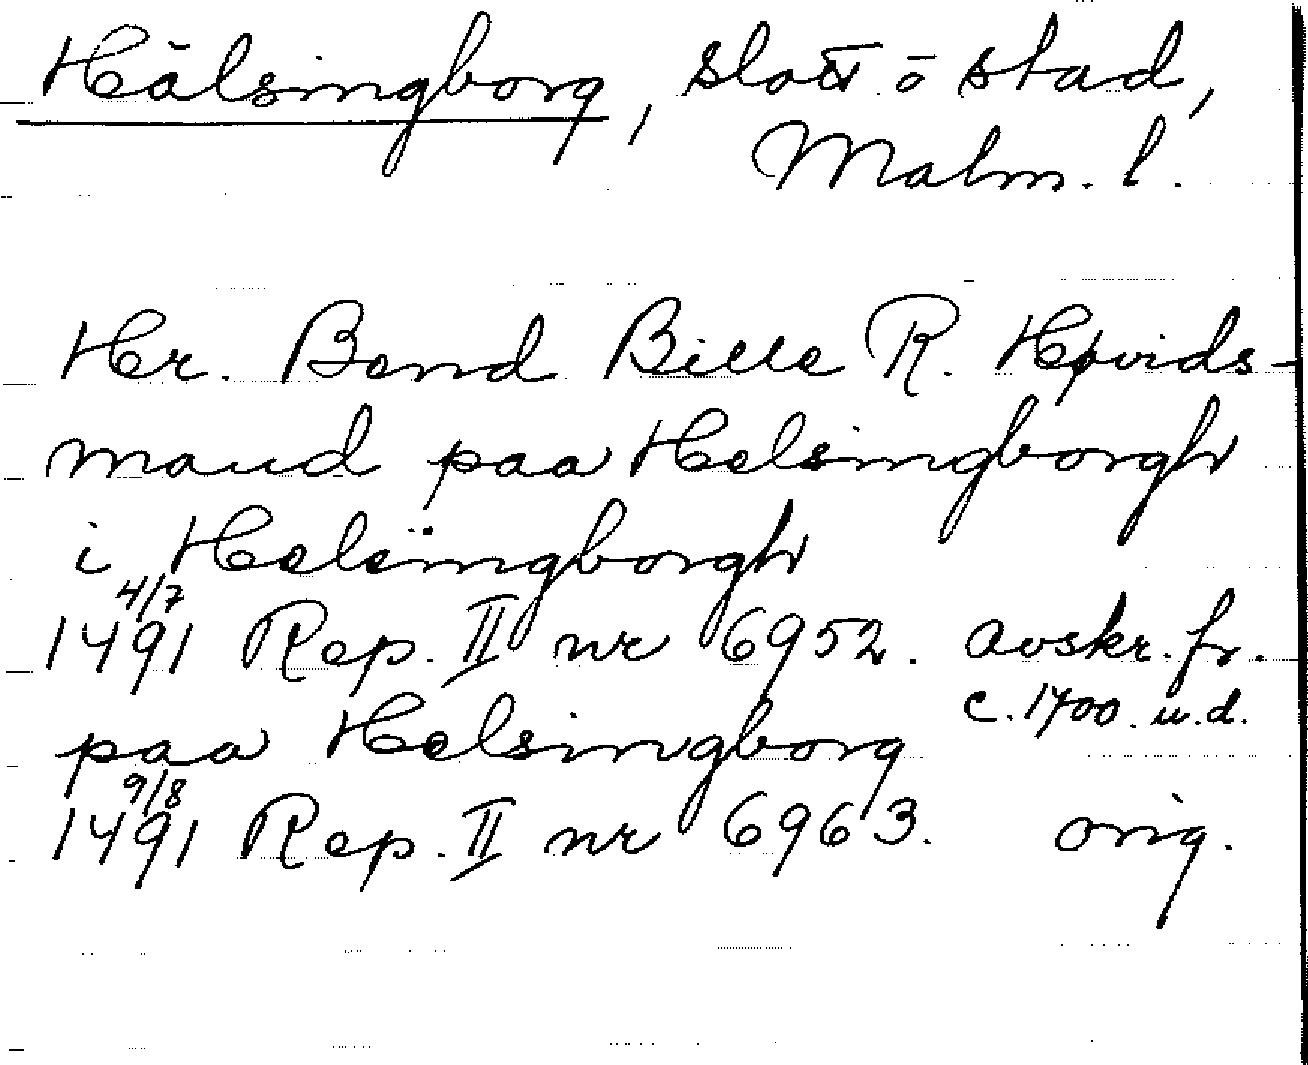 Hälsingborg, slott o stad,
Malm. l.
Her. Bend Bille R. Høvids-
mand paa Helsingborgh
i Helsingborgh
4/7
1491 Rep. II nr 6952. avskr. fr.
c. 1700. u. d.
paa Helsingborg
9/8
1491 Rep. II nr 6963. orig.